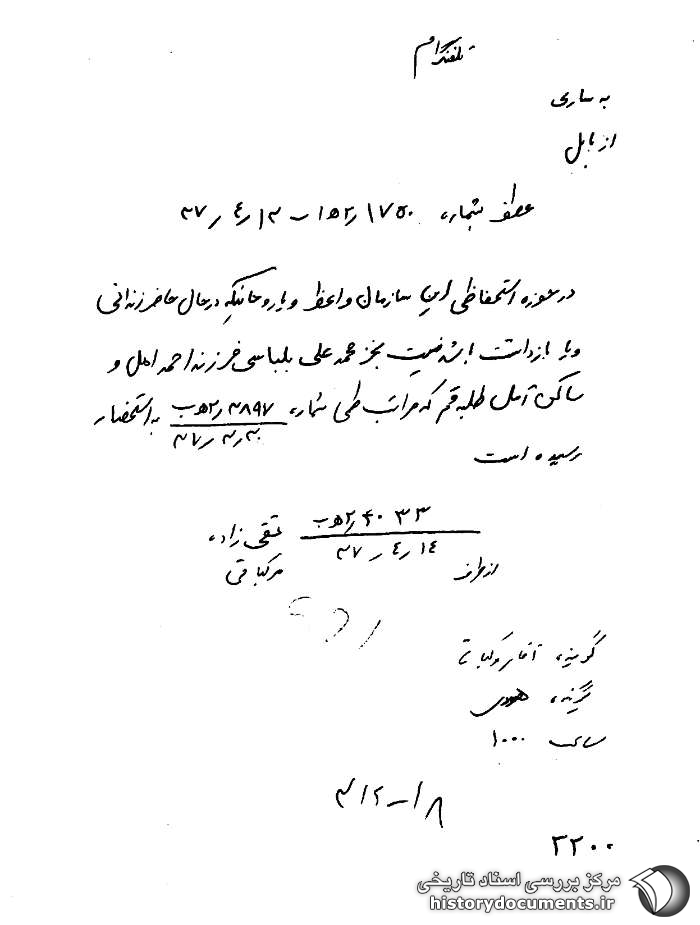 تلفنگرام
به ساری
از بابل
عطف بشماره ۱۷۵۰/۲ه‍ ۱ – ۳۷/۴/۱۳
در حوزه استحفاظی این سازمان واعظ و یا روحانیکه در حال حاضر زندانی
و یا بازداشت باشد نیست بجز محمد علی بلباسی فرزند احمد اهل و
ساکن آمل طلبه قم که مراتب طی شماره ۳۸۹۷/۲ه‍ ب به استحضار
۳۷/۳/۳۰
رسیده است
۴۰۳۳/۲ه‍ ب تقی زاده
۳۷/۴/۱۴
از طرف
گوینده آقای
گیرنده
ساعت ۱۰۰۰
۳۱۲-۱۸
۳۲۰۰
مرکز بررسی اسناد تاریخی
historydocuments.ir